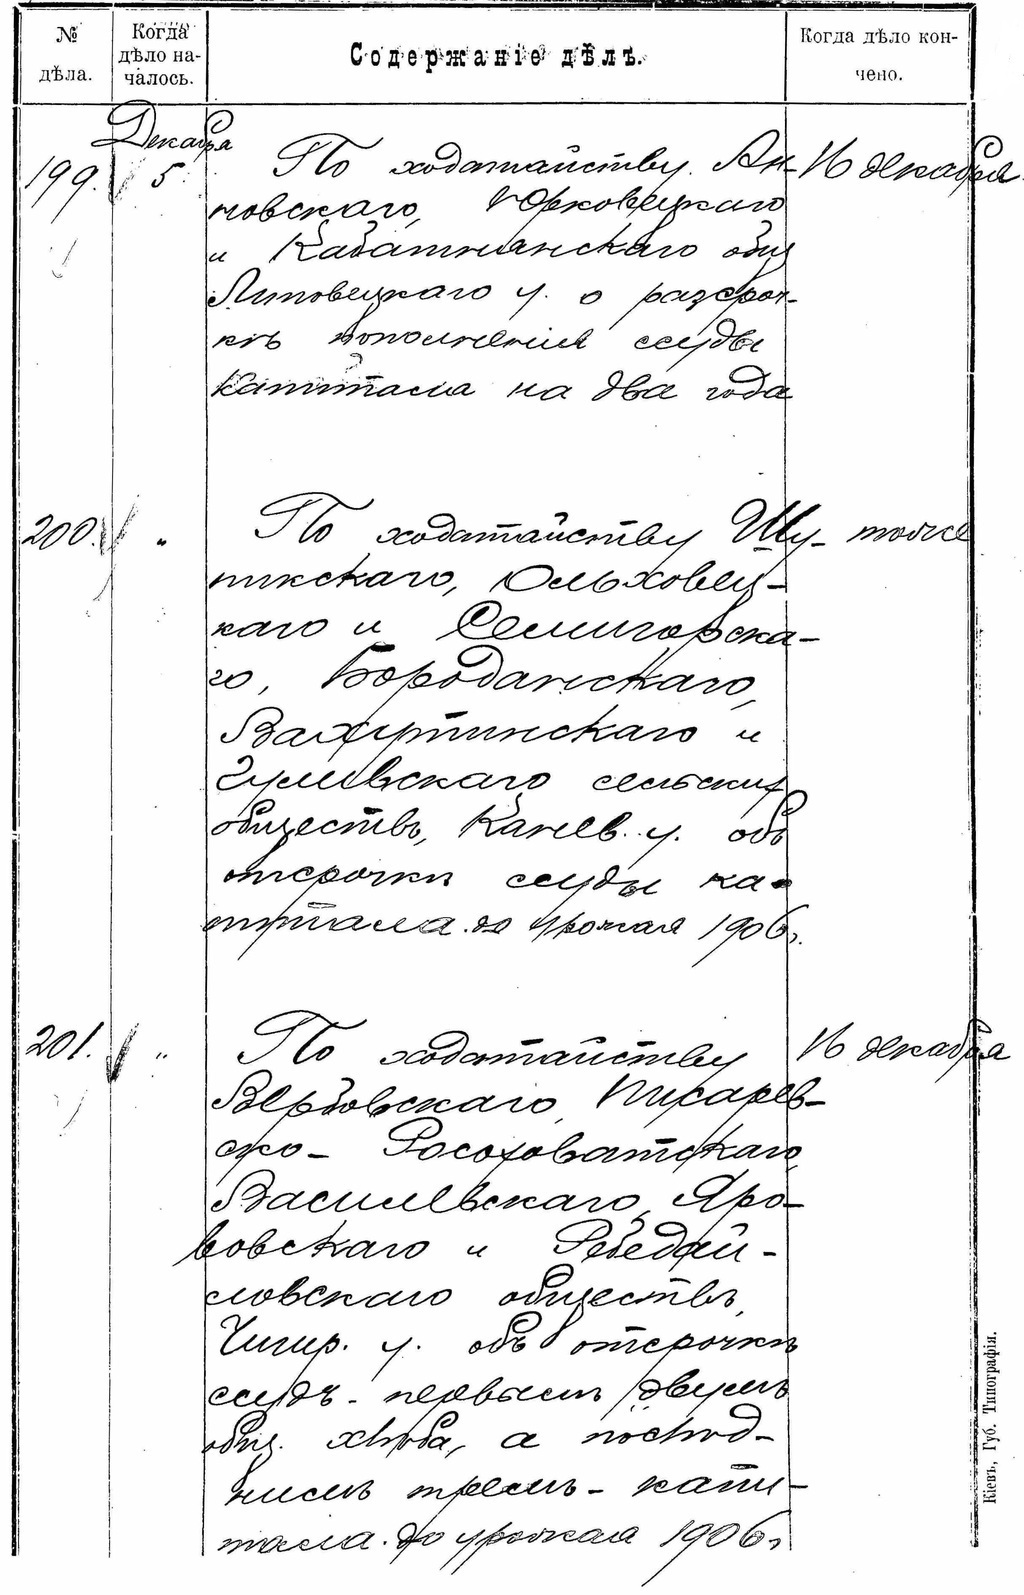 № дѣла.
Когда дѣло началось.
Содержаніе дѣлъ.
Когда дѣло кончено.
Декабря
199. 5. По ходатайству Ян- 16 декабря
новскаго, Юрковецкаго
и Кабатнянскаго общ
Липовецкаго у. о разсроч-
кѣ пополненія ссуды
капитала на два года
200. " По ходатайству Шу- тоже
пикскаго, Ольховец-
каго и Семигорска-
го, Бороданскаго,
Вахутинскаго и
Гулевскаго сельских
обществъ, Канев. у. объ
отсрочкѣ ссуды ка-
питала до урожая 1906 г.
201. " По ходатайству 16 декабря
Вербовскаго, Писарев-
ско-Росоховатскаго,
Василевскаго, Яро-
вовскаго и Ребедай-
ловскаго обществъ,
Чигир. у. объ отсрочкѣ
ссудъ - первымъ двумъ
общ. хлѣба, а послѣд-
нимъ тремъ - капи-
тала до урожая 1906 г
Кіевъ, Губ. Типографія.